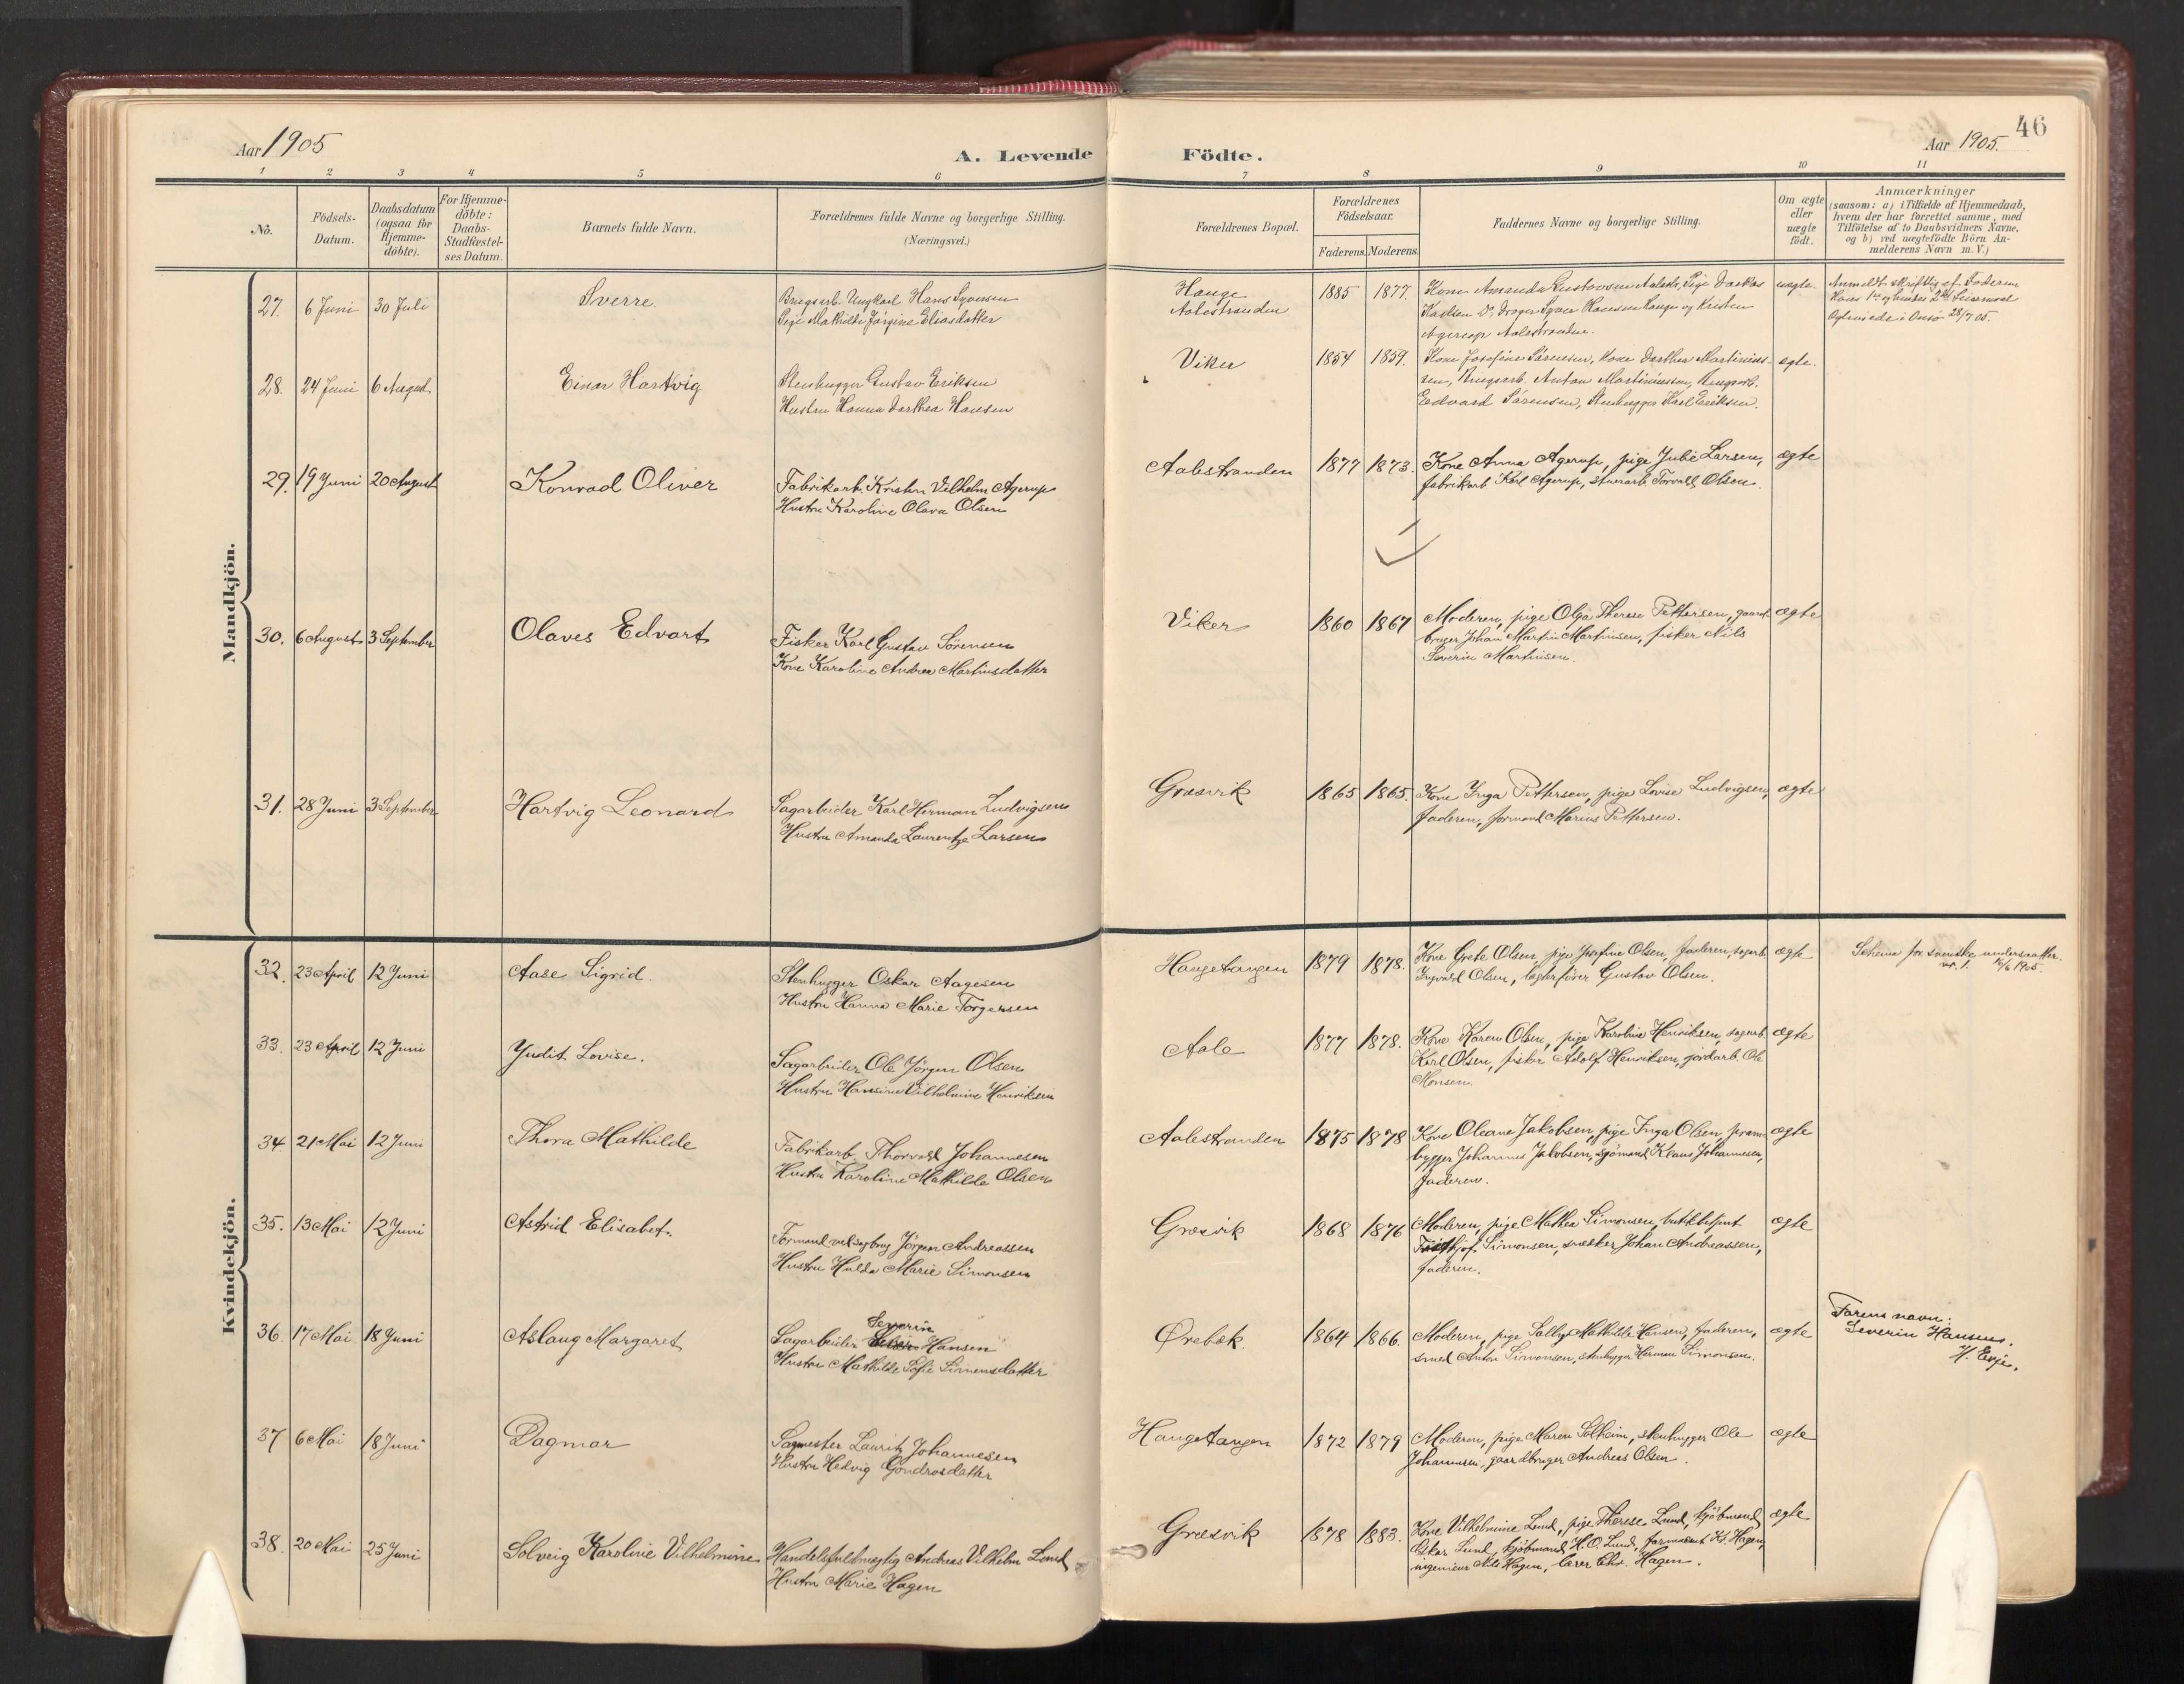 Aar 1905
A. Levende
1 2 3 4 5 6
No.
Födsels-
Datum.
Daabsdatum
(ogsaa for
Hjemme-
döbte).
For Hjemme-
döbte:
Daabs-
Stadfæstel-
ses Datum.
Barnets fulde Navn.
Forældrenes fulde Navne og borgerlige Stilling.
(Næringsvei.)
Mandkjön.
27. 6 Juni 30 Juli Sverre.
Ungkarl Hans
Pige Mathilde Jörgine Eliasdatter
28. 24 Juni 6 August Einar Hartvig
Stenhugger Gustav Eriksen
Hustru Hanna Dorthea Hansen
29. 19 Juni 20 August Konrad Oliver
Fabrikarb. Kristen Vilhelm Agerup
Hustru Karoline Olava Olsen
30. 6 August 3 September Olaves Edvart
Fisker Karl Gustav Sörensen
Kone Karoline Andrea Martinsdatter
31. 28 Juni 3 September Hartvig Leonard
Sagarbeider Karl Herman Ludvigsen
Hustru Amanda Laurentze Larsen
Kvindekjön.
32. 23 April 12 Juni Aase Sigrid.
Stenhugger Oskar Aagesen
Hustru Hanna Marie Torgersen
33. 23 April 12 Juni Yudit Lovise.
Sagarbeider Ole Jörgen Olsen
Hustru Hansine Vilhelmine Henriksen
34 21 Mai 12 Juni Thora Mathilde
Fabrikarb. Thorvald Johannesen
Hustru Karoline Mathilde Olsen
35. 13 Mai 12 Juni Astrid Elisabet.
Formand ved sagbrug Jörgen Andreassen
Hustru Hulda Marie Simonsen
36. 17 Mai 18 Juni Aslaug Margaret
Severin
Sagarbeider Hansen
Hustru Mathilde Sofie Simensdatter
37 6 Mai 18 Juni Dagmar
Sagmester Lauritz Johannesen
Hustru Hedvig
38. 20 Mai 25 Juni Solveig Karoline Vilhelmine
Handelsfuldmægtig Andreas Vilhelm Lund
Hustru Marie Hagen
46
Födte.
Aar 1905.
7 8 9 10 11
Forældrenes Bopæl.
Forældrenes
Födselsaar.
Faderens. Moderens.
Faddernes Navne og borgerlige Stilling.
Om ægte
eller
uægte
födt.
Anmærkninger
(saasom: a) i Tilfælde af Hjemmedaab,
hvem der har forrettet samme, med
Tilföielse af to Daabsvidners Navne,
og b) ved uægtefödte Börn An-
melderens Navn m. V.)
Hauge
Aalestranden
1885 1877. Kone Amanda Gustavsen Aalestr., Pige
Karlsen Do. og Kristen
Agerup Aalestranden.
uægte.
Anmeldt skriftlig af Faderen
Hans 1ste og hendes 2det
Onsö 28/7 05.
Viker 1854 1859. Kone Josefine Sörensen, Kone Dorthea Martinius-
sen, Anton Martiniussen,
Edvard Sörensen, Stenhugger Karl Eriksen.
ægte.
Aalestranden 1877 1873. Kone Anna Agerup, pige Julie Larsen,
fabrikarb. Karl Agerup, Torvald Olsen.
ægte
Viker 1860 1867 Moderen, pige Olga Therese Pettersen, gaard-
bruger Johan Martin Martinsen, fisker Nils
Severin Martinsen.
ægte
Græsvik 1865 1865. Kone Inga Pettersen, pige Lovise Ludvigsen,
faderen, formand Marius Pettersen.
ægte
Haugetangen 1879 1878. Kone Grete Olsen, pige Josefine Olsen, faderen, sagarb.
Ingvald Olsen, Gustav Olsen.
ægte
Schema for svenske undersaatter.
nr. 1. 16/6 1905.
Aale 1877 1878. Kone Karen Olsen, pige Karoline Henriksen, sagarb.
Karl Olsen, fisker Adolf Henriksen, jordarb. Ole
Monsen.
ægte
Aalestranden 1875 1878 Kone Oleane Jakobsen, pige Inga Olsen, pram-
bygger Johannes Jakobsen, sjömand Klaus Johannesen,
faderen.
ægte
Græsvik 1868 1876 Moderen, pige Mathea Simonsen, butikbetjent
Frithjof Simonsen, snedker Johan Andreassen,
faderen.
ægte
Ørebæk. 1864 1866. Moderen, pige Mathilde Hansen, faderen,
smed Anton Simonsen, stenhugger Herman Simonsen.
ægte
Farens navn:
Severin Hansen.
H. Evje.
Haugetangen 1872 1879 Moderen, pige Maren Solheim, stenhugger Ole
Johannesen, gaardbruger Andreas Olsen.
ægte
Græsvik 1878 1883. Kone Vilhelmine Lund, pige Therese Lund, kjöbmand
Oskar Lund, kjöbmand H. O. Lund, Hagen,
ingeniör Nils Hagen, lærer Chr. Hagen.
ægte